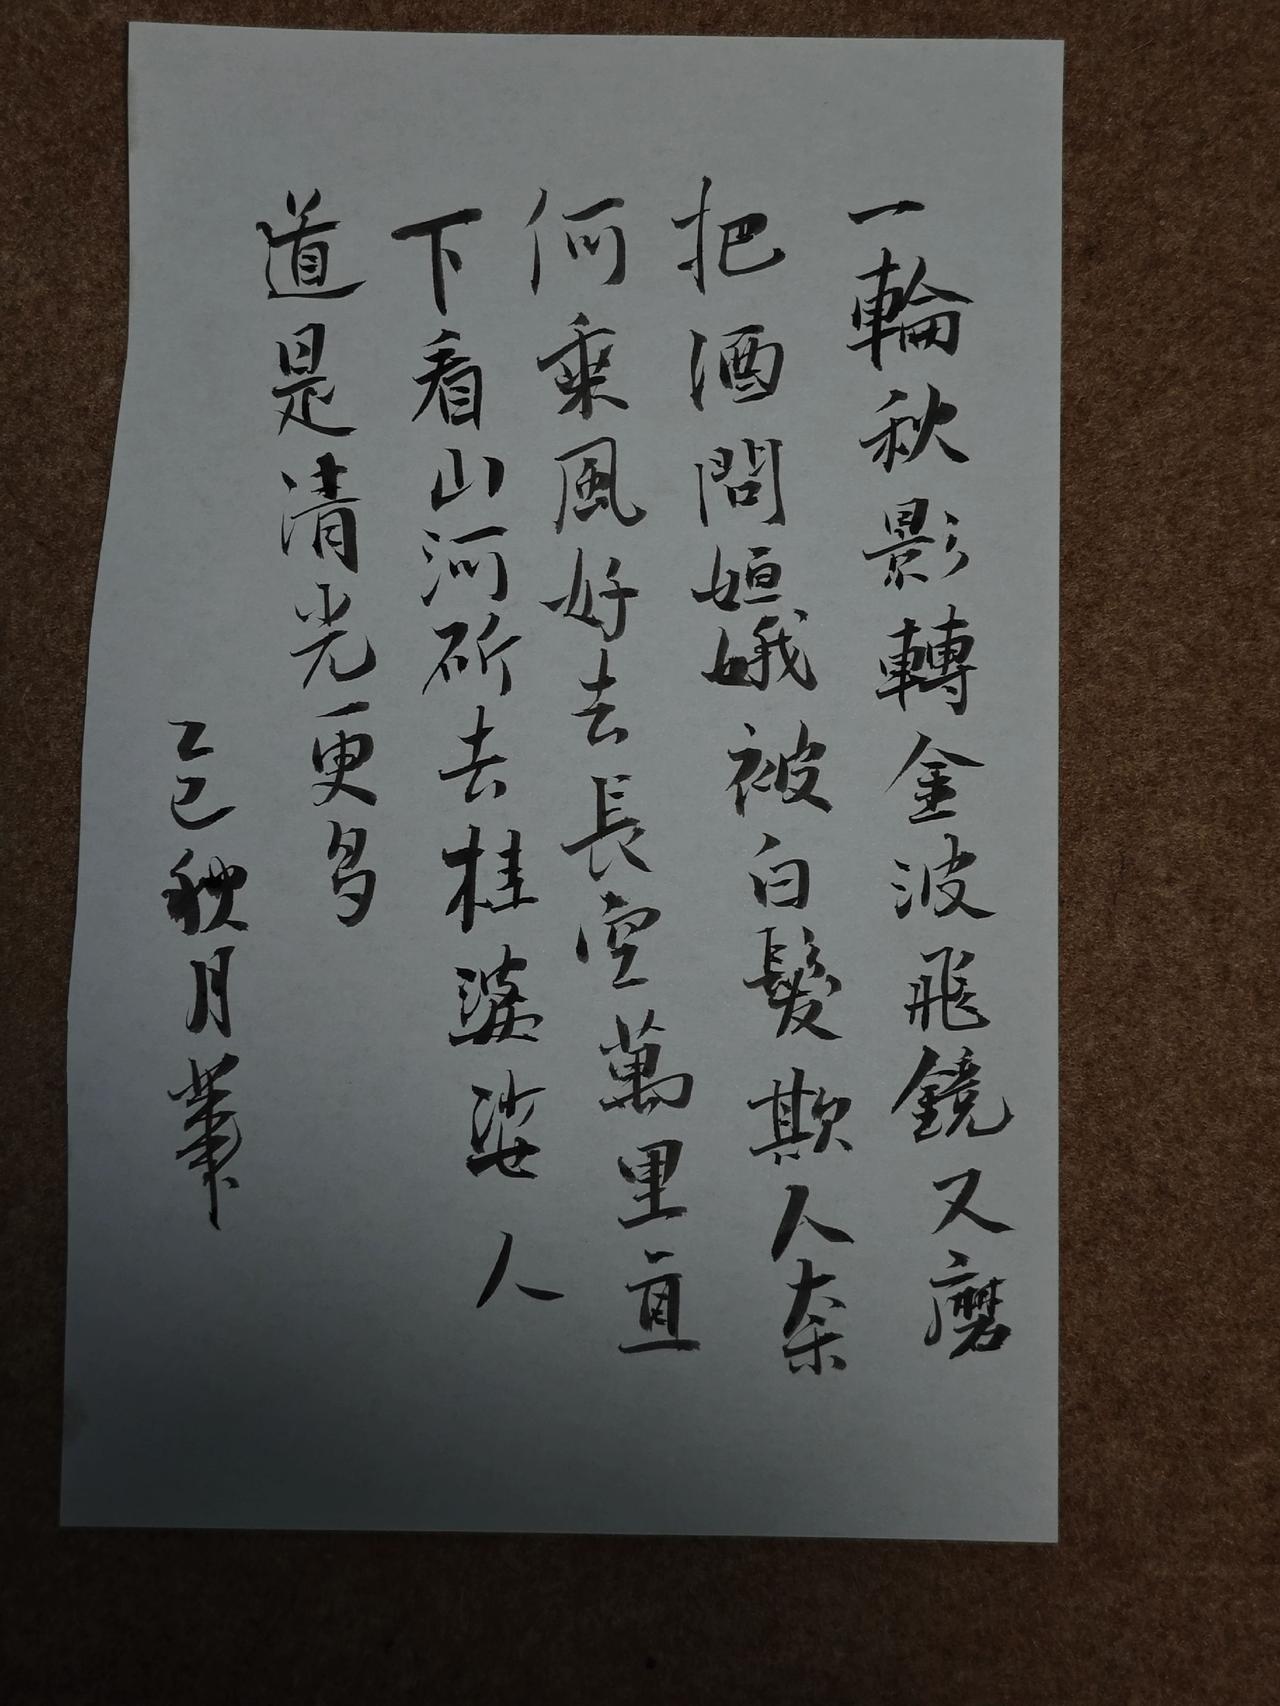 一輪秋影轉金波飛鏡又磨
把酒問姮娥被白髮欺人奈
何乘風好去長空萬里直
下看山河斫去桂婆娑人
道是清光更多
乙巳秋月業